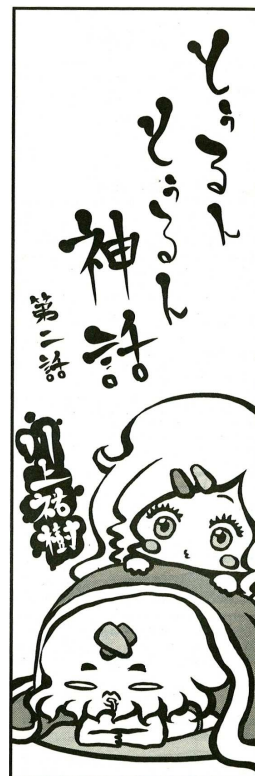 とぅるん
とぅるん
神話
第二話
川上祐樹